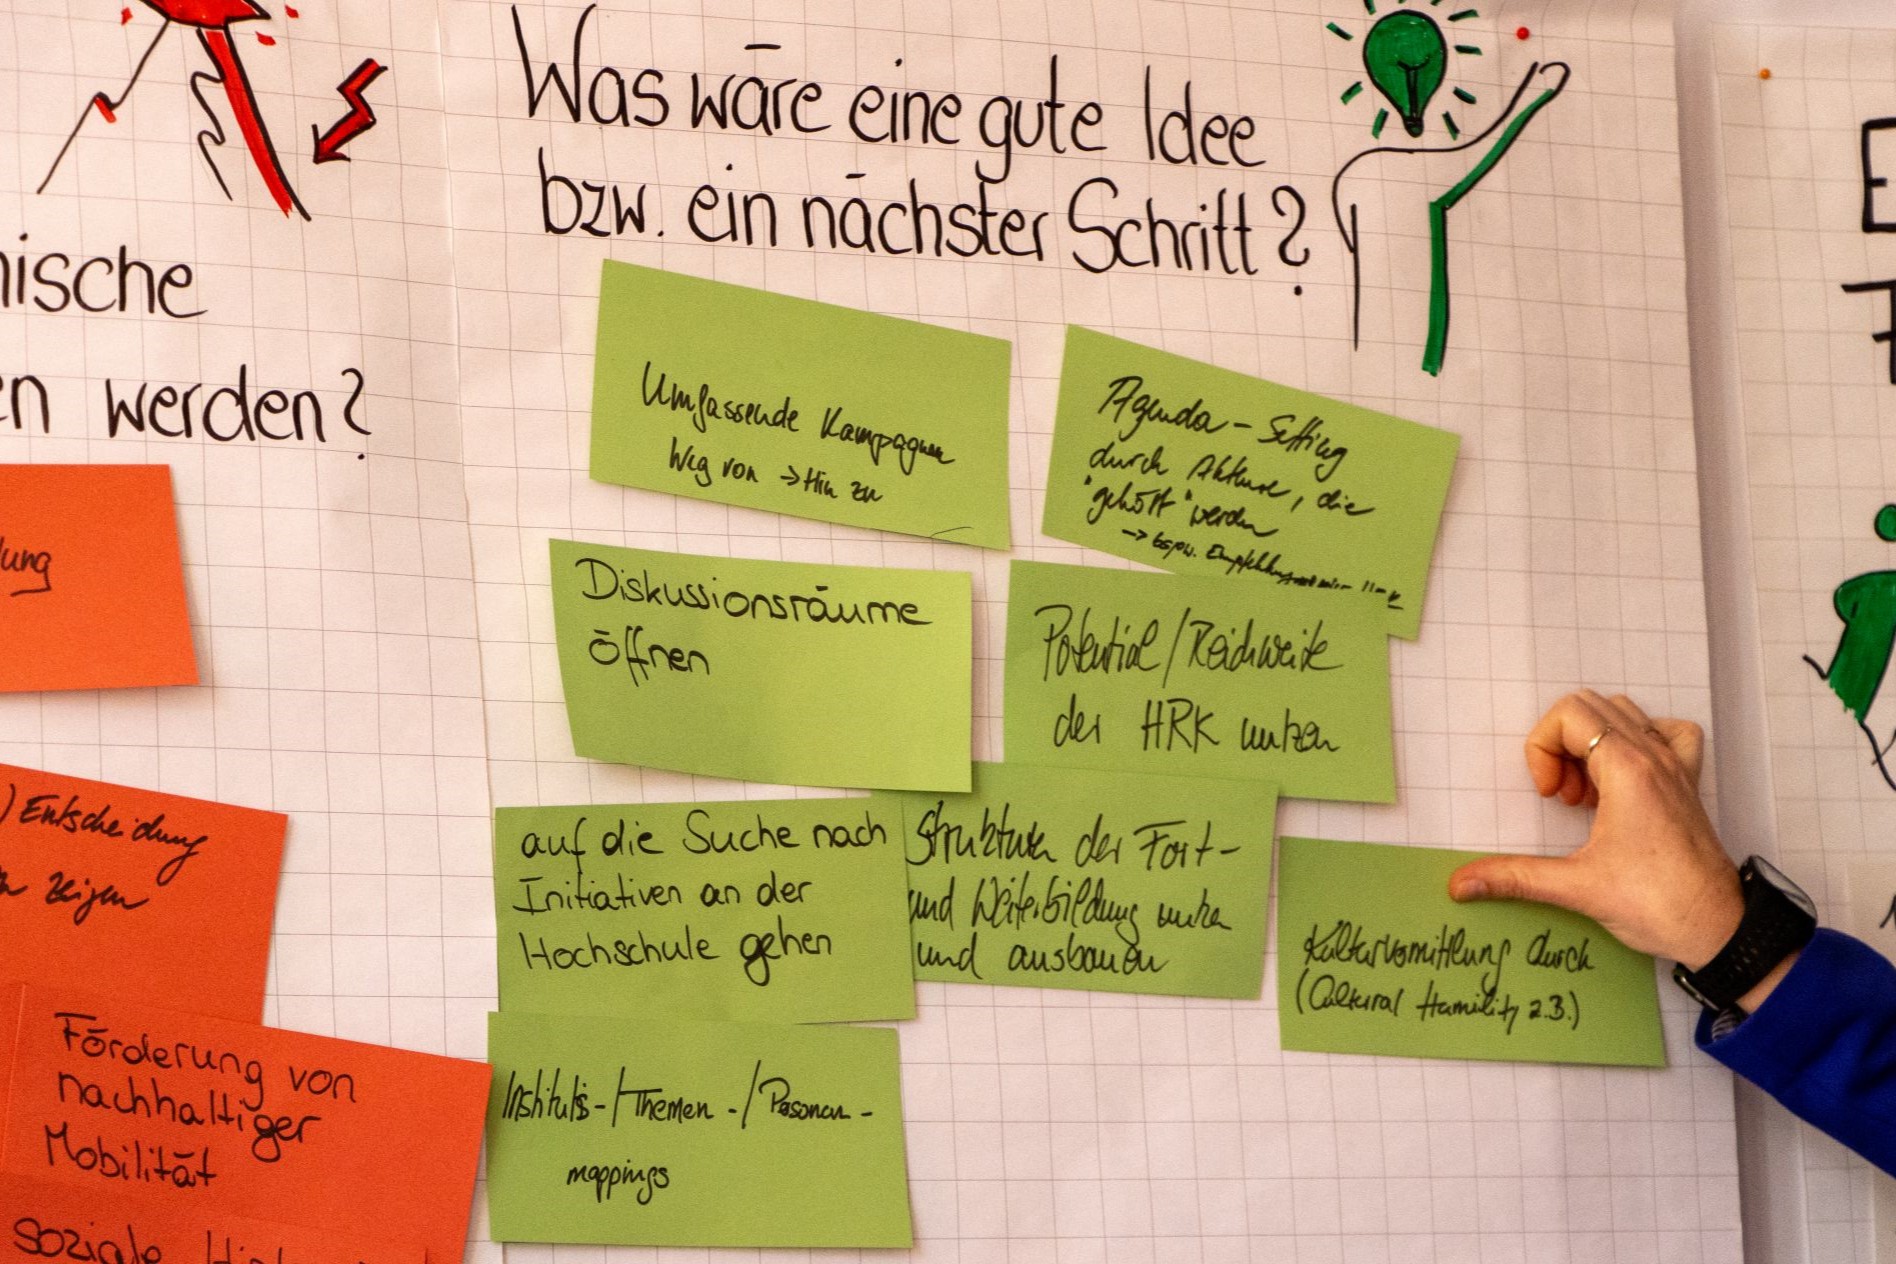 Was wäre eine gute Idee
bzw. ein nächster Schritt?
nische
en werden?
Umfassende Kampagnen
Weg von → Hin zu
Agenda-Setting
durch Akteure, die
"gehört" werden
→ bspw.
Diskussionsräume
öffnen
Potential/Reichweite
der HRK nutzen
auf die Suche nach
Initiativen an der
Hochschule gehen
Strukturen der Fort-
und Weiterbildung nutzen
und ausbauen
Kulturvermittlung durch
(Cultural Humility z.B.)
Instituts-/Themen-/Personen-
mappings
lung
) Entscheidung
zeigen
Förderung von
nachhaltiger
Mobilität
soziale
E
T